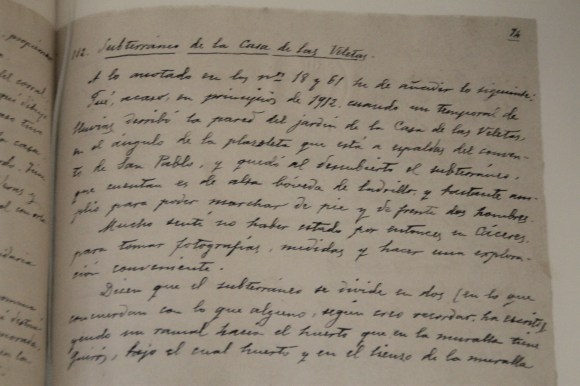 74
112. Subterráneo de la Casa de las Veletas.
A lo anotado en los nos 18 y 61 he de añadir lo siguiente:
Fué, acaso, en principios de 1912, cuando un temporal de
lluvias derribó la pared del jardín de la Casa de las Veletas,
en el ángulo de la plazoleta que está a espaldas del conven-
to de San Pablo, y quedó al descubierto el subterráneo,
que cuentan es de alta bóveda de ladrillo, y bastante am-
plio para poder marchar de pie y de frente dos hombres.
Mucho sentí no haber estado por entonces en Cáceres,
para tomar fotografías, medidas y hacer una explora-
ción conveniente.
Dicen que el subterráneo se divide en dos (en lo que
concuerdan con lo que alguno, según creo recordar, ha escrito),
yendo un ramal hacia el huerto que en la muralla tiene
Quirós, bajo el cual huerto y en el lienzo de la muralla
del corral,
que dibuja
la casa